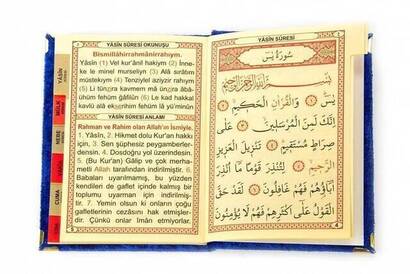 YÂSÎN SÛRESİ OKUNUŞU
Bismillâhirrahmânirrahîym.
Yâsîn (1) Vel kur'ânil hakiym (2) İnne-
ke le minel murseliyn (3) Alâ sırâtım
müstekıym (4) Tenziylel aziyzir rahıym
(5) Li tünzira kavmem mâ ünzira âbâ-
ühüm fehüm ğâfilûn (6) Le kad hakkal
kavlü alâ ekserihim fehüm lâ yü'minûn
YÂSÎN SÛRESİ ANLAMI
Rahman ve Rahim olan Allah'ın İsmiyle.
1. Yâsîn, 2. Hikmet dolu Kur'an hakkı
için, 3. Sen şüphesiz peygamberler-
densin. 4. Dosdoğru yol üzerindesin.
5. (Bu Kur'an) Gâlip ve çok merha-
metli Allah tarafından indirilmiştir. 6.
Babaları uyarılmamış, bu yüzden
kendileri de gaflet içinde kalmış bir
toplumu uyarman için indirilmiş-
tir. 7. Yemin olsun ki onların çoğu
gafletlerinin cezasını hak etmişler-
dir. Çünkü onlar İman etmiyorlar.
5
YÂSİN
MÜLK
NEBE
CUMA
YÂSÎN SÛRESİ
سُورَةُ يٰسٓ
بِسْمِ اللّٰهِ الرَّحْمٰنِ الرَّحِيمِ
يٰسٓ ﴿١﴾ وَالْقُرْاٰنِ الْحَكِيمِ ﴿٢﴾
اِنَّكَ لَمِنَ الْمُرْسَلِينَ ﴿٣﴾ عَلٰى
صِرَاطٍ مُسْتَقِيمٍ ﴿٤﴾ تَنْزِيلَ الْعَزِيزِ
الرَّحِيمِ ﴿٥﴾ لِتُنْذِرَ قَوْمًا مَٓا اُنْذِرَ
اٰبَٓاؤُهُمْ فَهُمْ غَافِلُونَ ﴿٦﴾ لَقَدْ حَقَّ
الْقَوْلُ عَلٰٓى اَكْثَرِهِمْ فَهُمْ لَا يُؤْمِنُونَ
4